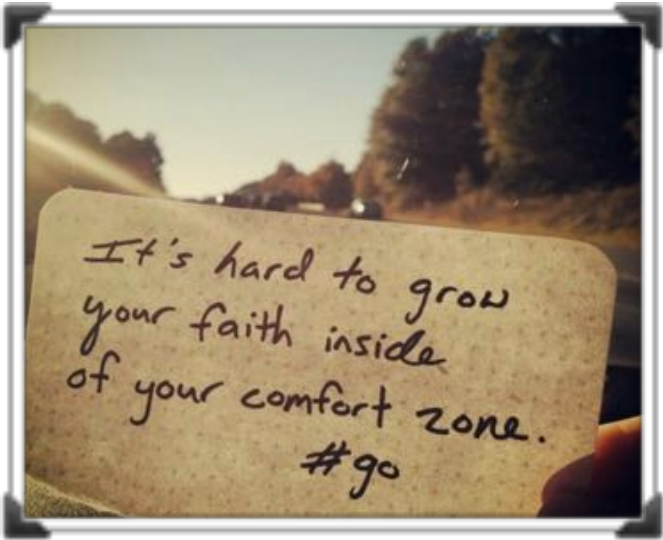 It's hard to grow
your faith inside
of your comfort zone.
#go